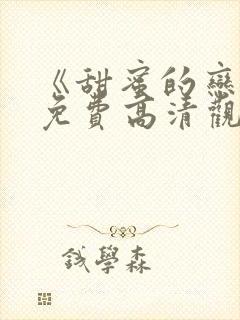 《甜蜜的戀
免費高清觀
錢學森